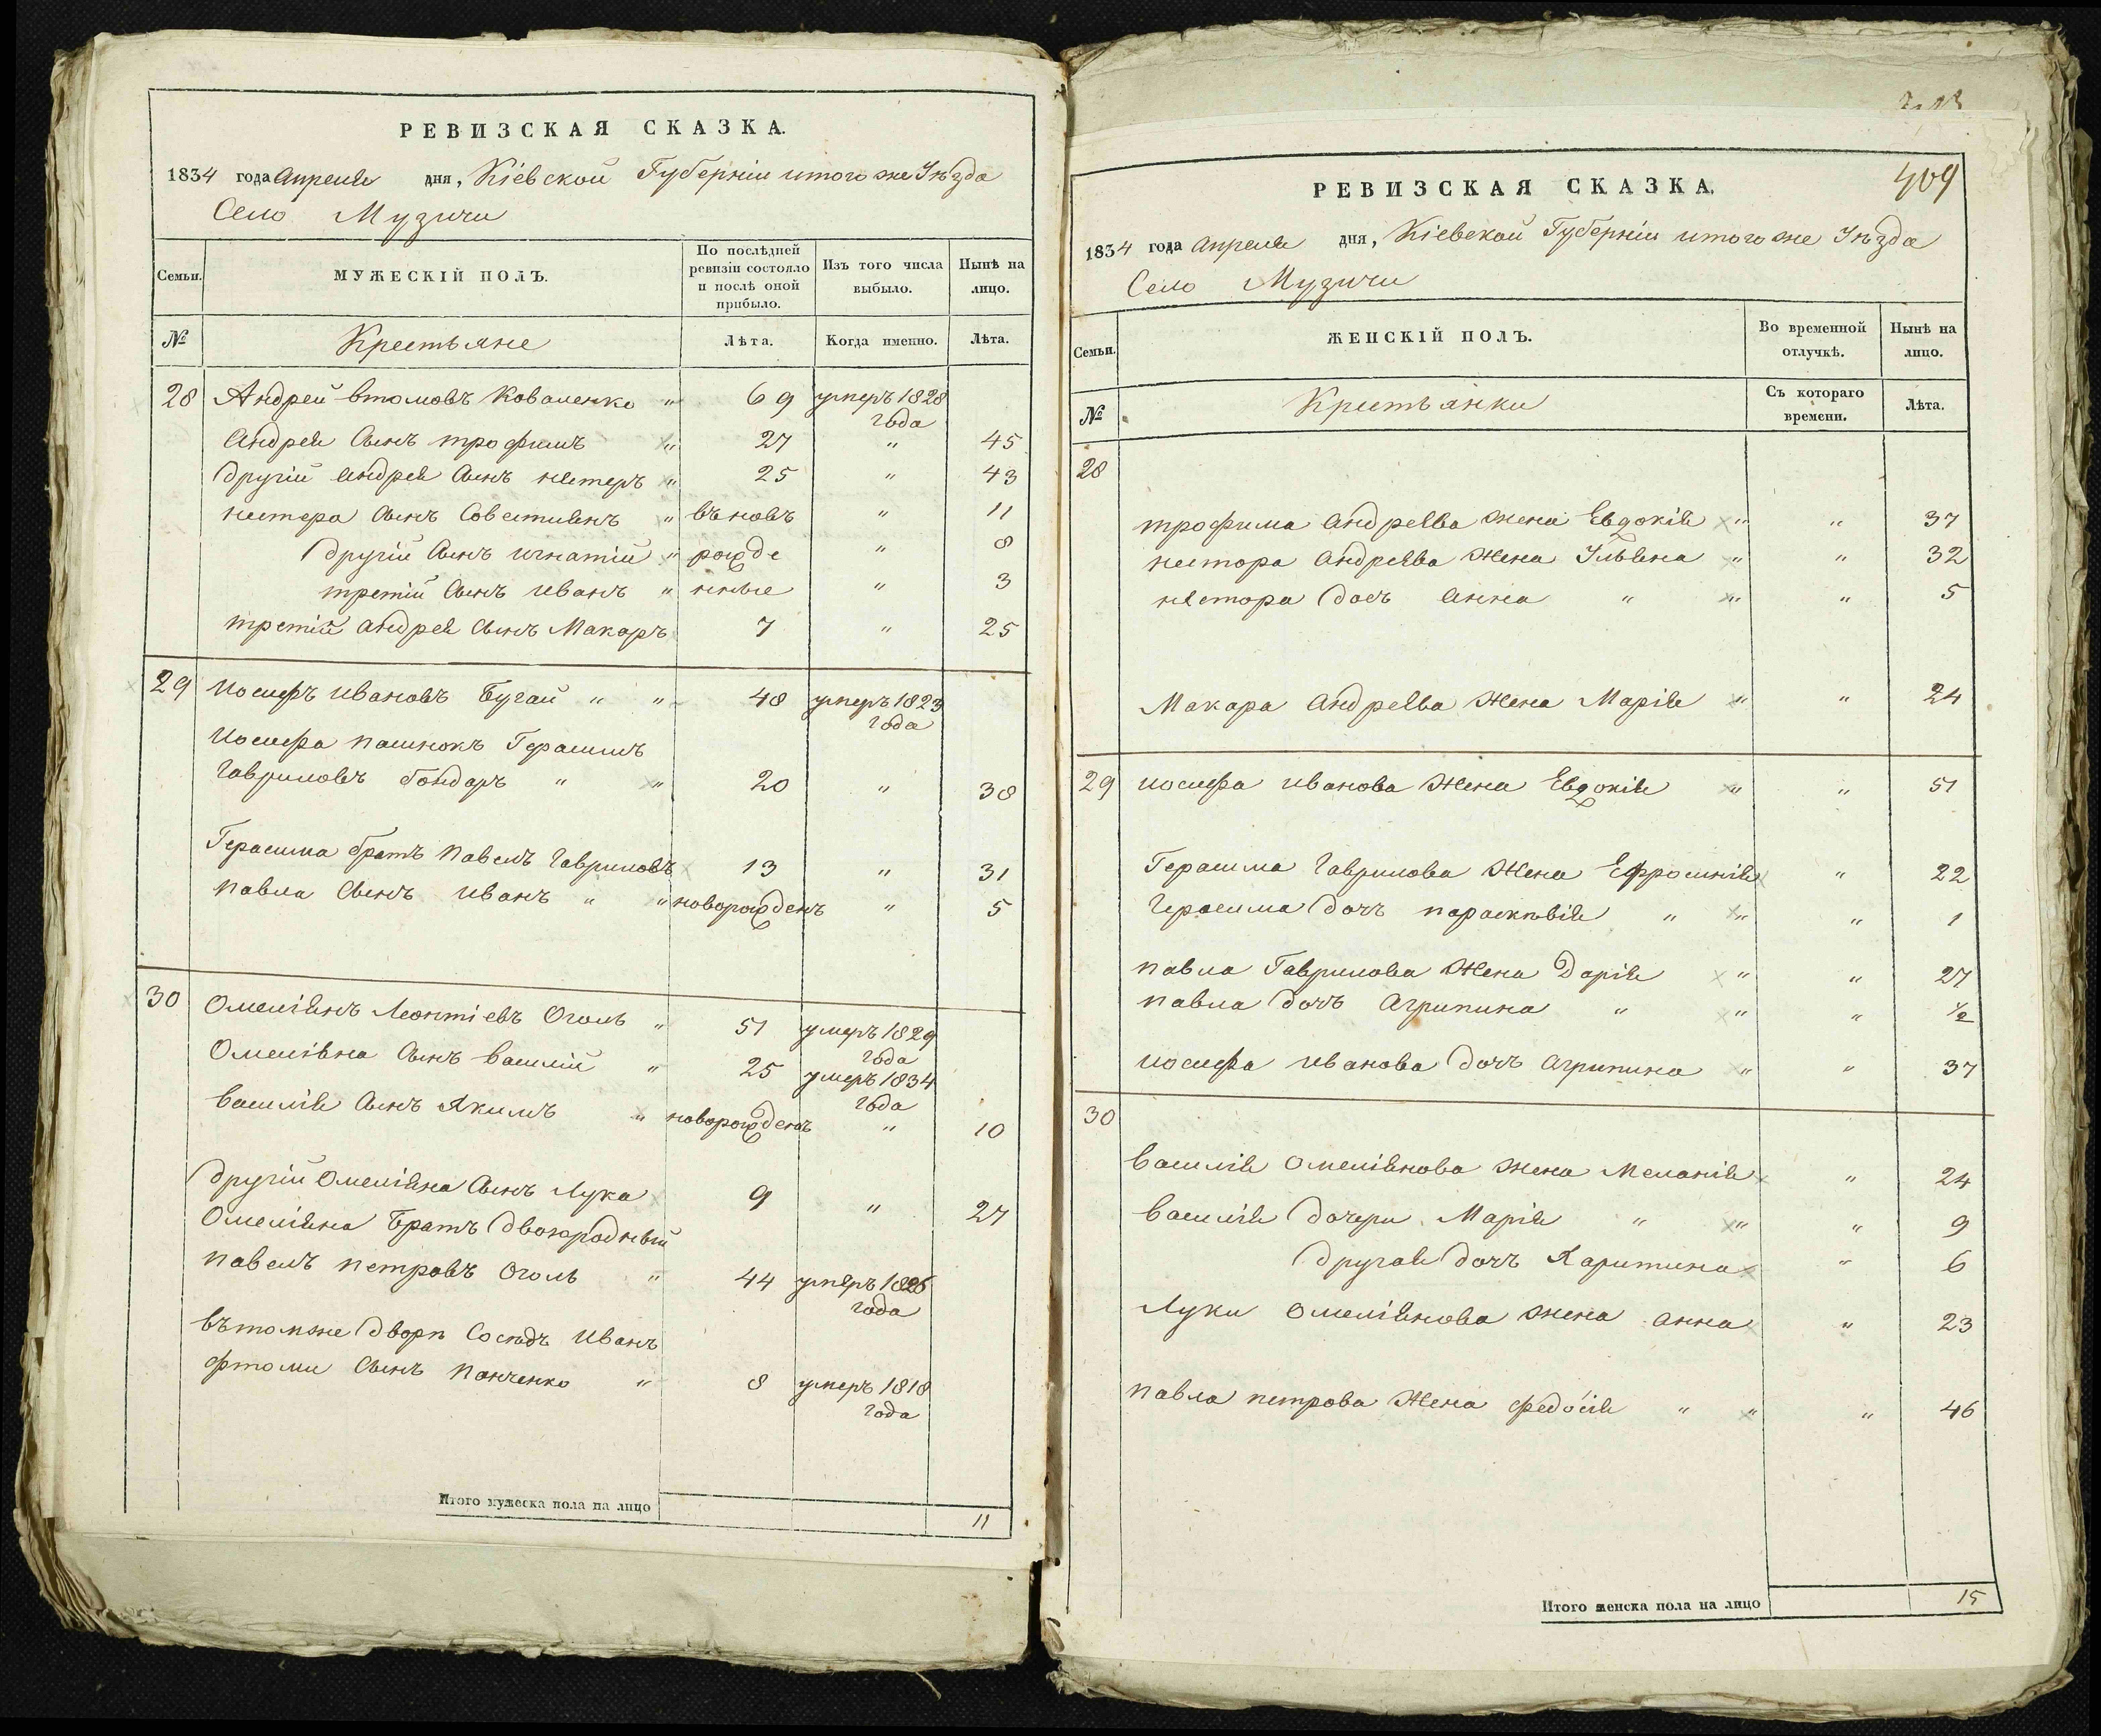 РЕВИЗСКАЯ СКАЗКА.
1834 года Апреля дня, Кіевской Губерніи и того же Уѣзда
Село Музичи
Семьи. МУЖЕСКІЙ ПОЛЪ. По послѣдней ревизіи состояло и послѣ оной прибыло. Изъ того числа выбыло. Нынѣ на лицо.
№ Крестьяне Лѣта. Когда именно. Лѣта.
28 Андрей втомовъ Коваленко " 69 умеръ 1828
года
Андрея Сынъ трофимъ " 27 " 45
другій Андрея Сынъ нестеръ " 25 " 43
нестера Сынъ Севастиянъ " въновь " 11
другій Сынъ игнатій " рожде " 8
третій Сынъ иванъ " нные " 3
третій андрея Сынъ Макаръ 7 " 25
29 иосифъ ивановъ Бугай " " 48 умеръ 1823
года
иосифа пасинокъ Герасимъ
Гавриловъ бондаръ " " 20 " 38
Герасима братъ павелъ Гавриловъ 13 " 31
павла Сынъ иванъ " " новорожденъ " 5
30 Омеліянъ Леонтіевъ Оголь " 51 умеръ 1829
года
Омеліяна Сынъ василій " 25 умеръ 1834
года
василія Сынъ Якимъ " новорожденъ " 10
другій Омеліяна Сынъ Лука 9 " 27
Омеліяна Братъ двоюродный
павелъ петровъ Оголь " 44 умеръ 1826
года
вътомже дворѣ Сосѣдъ иванъ
фтомы Сынъ панченко " 8 умеръ 1818
года
Итого мужеска пола на лицо 11
409
РЕВИЗСКАЯ СКАЗКА.
1834 года Апреля дня, Кіевской Губерніи и того же Уѣзда
Село Музичи
Семьи. ЖЕНСКІЙ ПОЛЪ. Во временной отлучкѣ. Нынѣ на лицо.
№ Крестьянки Съ котораго времени. Лѣта.
28
трофима андреева жена Евдокія " " 37
нестора андреева жена Ульяна " " 32
нестора дочь анна " " " 5
Макара андреева жена Марія " " 24
29 иосифа иванова жена Евдокія " " 51
Герасима Гаврилова жена Ефросинія " 22
Герасима дочь параскѣвія " " " 1
павла Гаврилова жена Дарія " " 27
павла дочь агрипина " " " 1/2
иосифа иванова дочь агрипина " " 37
30
василія омеліянова жена меланія " 24
василія дочери Марія " " " 9
другая дочь Харитина " 6
Луки омеліянова жена анна " 23
павла петрова жена федосія " " " 46
Итого женска пола на лицо 15